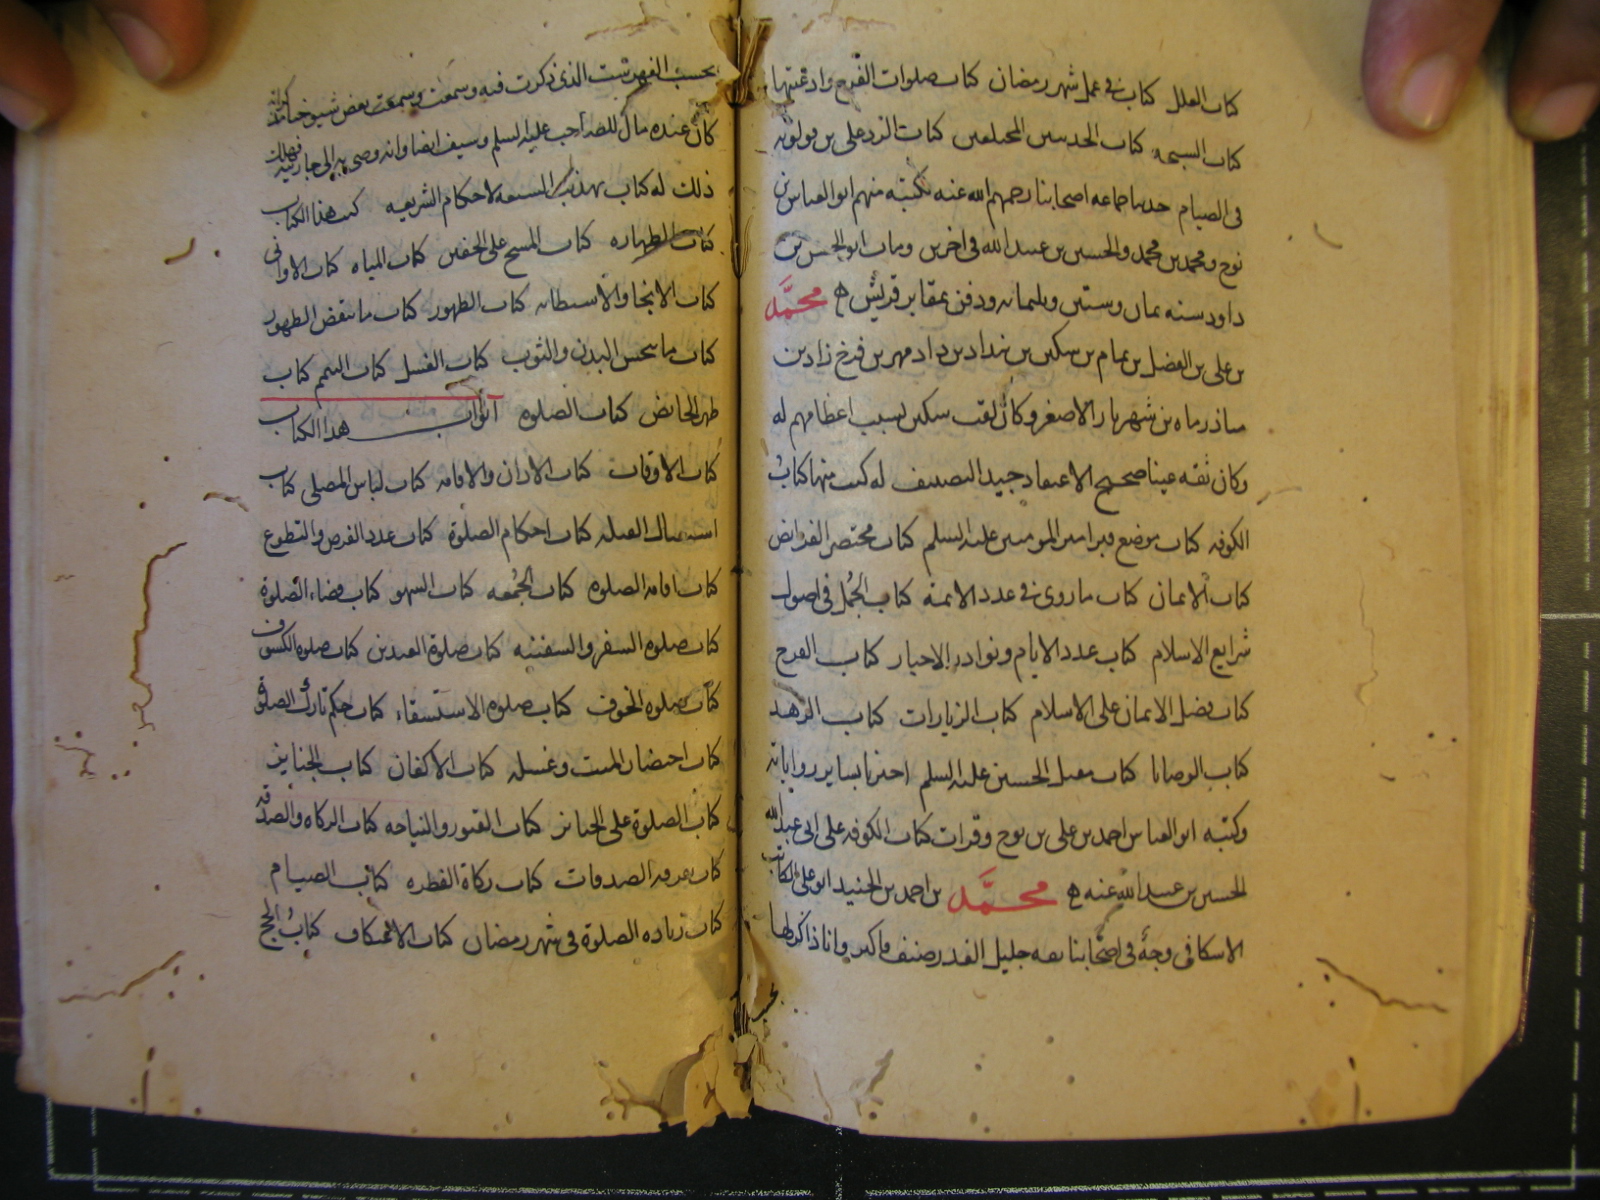 كتاب العلل كتاب في عمل شهر رمضان كتاب صلوات الفرج وادعيتها
كتاب السبحه كتاب الحديثين المختلفين كتاب الرد على بن قولويه
في الصيام حدثنا جماعه اصحابنا رحمهم الله عنه بكتبه منهم ابو العباس بن
نوح ومحمد بن محمد والحسين بن عبيد الله في اخرين ومات ابو الحسن بن
داود سنه ثمان وستين وثلثمائه ودفن بمقابر قريش محمد
بن علي بن الفضل بن تمام بن سكين بن بنداد بن داد مهر بن فرخ زاد بن
مياذر ماه بن شهريار الاصغر وكان لقب سكين بسبب اعظامهم له
وكان ثقه عينا صحيح الاعتقاد جيد التصنيف له كتب منها كتاب
الكوفه كتاب موضع قبر امير المومنين عليه السلم كتاب مختصر الفرائض
كتاب الايمان كتاب ما روي في عدد الائمة كتاب الجمل في اصول
شرايع الاسلام كتاب عدد الايام ونوادر الاخبار كتاب الفرج
كتاب فضل الايمان على الاسلام كتاب الزيارات كتاب الزهد
كتاب الوصايا كتاب مقتل الحسين عليه السلم اخبرنا بساير رواياته
وكتبه ابو العباس احمد بن علي بن نوح وقرات كتاب الكوفه على ابي عبد الله
الحسين بن عبيد الله عنه محمد بن احمد بن الجنيد ابو علي الكاتب
الاسكافي وجه في اصحابنا ثقه جليل القدر صنف فاكثر وانا ذاكرها
بحسب الفهرست الذي ذكرت فيه وسمعت وسمعت بعض شيوخنا يذكر انه
كان عنده مال للصاحب عليه السلم وسيف ايضا وانه وصى به الى جاريته فهلك
ذلك له كتاب تهذيب الشيعه لاحكام الشريعه كتب هذا الكتاب
كتاب الطهاره كتاب المسح على الخفين كتاب المياه كتاب الاواني
كتاب الانجاء والاستطابه كتاب الطهور كتاب ما ينقض الطهور
كتاب ما ينجس البدن والثوب كتاب الغسل كتاب التيمم كتاب
طهر الحائض كتاب الصلوه ابواب هذا الكتاب
كتاب الاوقات كتاب الاذان والاقامه كتاب لباس المصلي كتاب
استقبال القبله كتاب احكام الصلوة كتاب عدد الفرض والتطوع
كتاب اقامة الصلوه كتاب الجمعه كتاب السهو كتاب قضاء الصلوة
كتاب صلوه السفر والسفينه كتاب صلوة العيدين كتاب صلوه الكسوف
كتاب صلوه الخوف كتاب صلوه الاستسقاء كتاب حكم تارك الصلوة
كتاب احتضار الميت وغسله كتاب الاكفان كتاب الجنايز
كتاب الصلوة على الجنائز كتاب القبور والنياحه كتاب الزكاه والصدقة
كتاب تفرقه الصدقات كتاب زكاة الفطره كتاب الصيام
كتاب زياده الصلوة في شهر رمضان كتاب الاعتكاف كتاب الحج